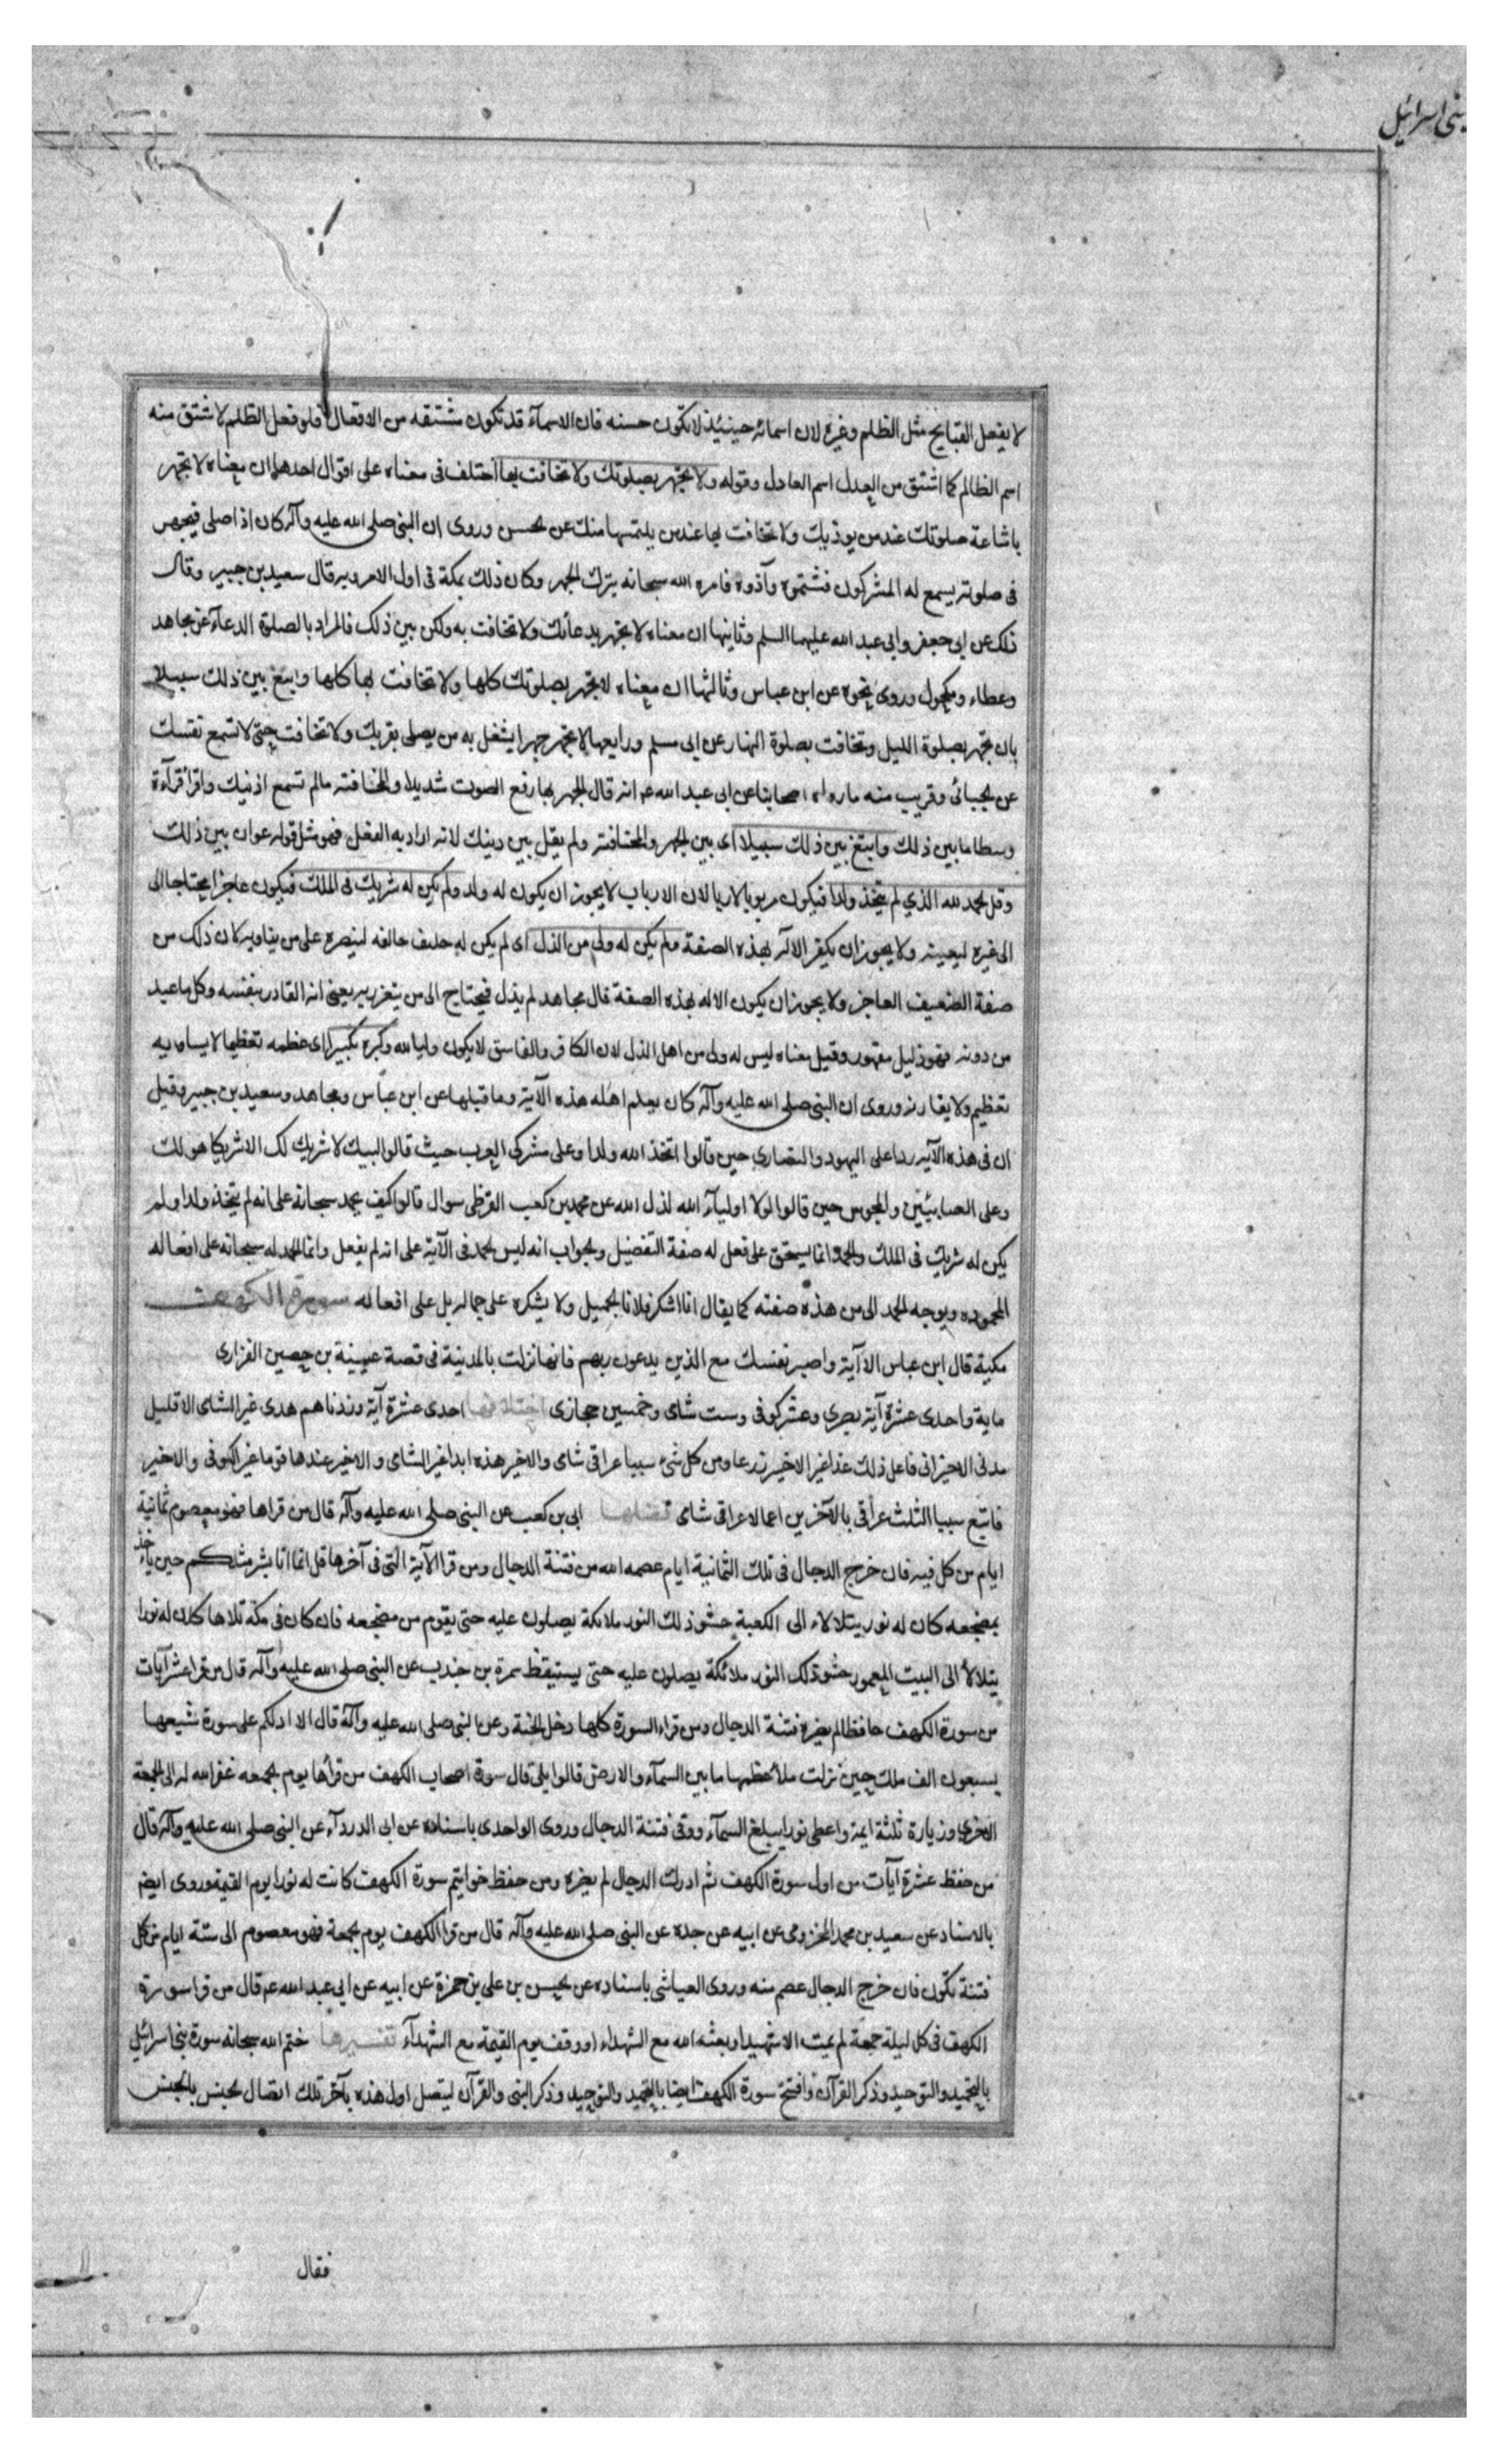 بنی اسرائیل
لا يفعل القبايح مثل الظلم وغيره لان اسمائه حينئذ لا تكون حسنه فان الاسمآء قد تكون مشتقه من الافعال فلو فعل الظلم لاشتق منه
اسم الظالم كما اشتق من العدل اسم العادل وقوله ولا تجهر بصلوتك ولا تخافت بها اختلف فى معناه على اقوال احدها ان معناه لا تجهر
باشاعة صلوتك عند من يوذيك ولا تخافت بها عند من يلتمسها منك عن الحسن وروى ان النبى صلى الله عليه وآله كان اذا صلى فيجهر
فى صلوته يسمع له المشركون فشتموه وآذوه فامره الله سبحانه بترك الجهر وكان ذلك بمكة فى اول الامر وبه قال سعيد بن جبير وقال
ذلك عن ابى جعفر وابى عبد الله عليهما السلم وثانيها ان معناه لا تجهر بدعائك ولا تخافت به ولكن بين ذلك فالمراد بالصلوة الدعآء عن مجاهد
وعطاء ومكحول وروى نحوه عن ابن عباس وثالثها ان معناه لا تجهر بصلوتك كلها ولا تخافت بها كلها وابتغ بين ذلك سبيلا
بان تجهر بصلوة الليل وتخافت بصلوة النهار عن ابى مسلم ورابعها لا تجهر جهرا يشغل به من يصلى بقربك ولا تخافت حتى لا تسمع نفسك
عن الجبائى وقريب منه ما رواه اصحابنا عن ابى عبد الله عم انه قال الجهر بها رفع الصوت شديدا والمخافتة مالم تسمع اذنيك واقرأ قرآءة
وسطا ما بين ذلك وابتغ بين ذلك سبيلا اى بين الجهر والمخافتة ولم يقل بين دينك لانه اراد به الفعل فهو مثل قوله عوان بين ذلك
وقل الحمد لله الذي لم يتخذ ولدا فيكون مربوبا لا ربا لان الارباب لا يجوز ان يكون له ولد ولم يكن له شريك فى الملك فيكون عاجزا محتاجا الى
الى غيره ليعينه ولا يجوز ان يكون الاله بهذه الصفة ولم يكن له ولى من الذل اى لم يكن له حليف حالفه لينصره على من يناويه لان ذلك من
صفة الضعيف العاجز ولا يجوز ان يكون الاله بهذه الصفة قال مجاهد لم يذل فيحتاج الى من يتعزز به يعنى انه القادر بنفسه وكل ما عبد
من دونه فهو ذليل مقهور وقيل معناه ليس له ولى من اهل الذل لان الكافر والفاسق لا يكون وليا لله وكبره تكبيرا اى عظمه تعظيما لا يساويه
تعظيم ولا يقاربه وروى ان النبى صلى الله عليه وآله كان يعلم اهله هذه الآية وما قبلها عن ابن عباس ومجاهد وسعيد بن جبير وقيل
ان فى هذه الآيه ردا على اليهود والنصارى حين قالوا اتخذ الله ولدا وعلى مشركى العرب حيث قالوا لبيك لا شريك لك الا شريكا هو لك
وعلى الصابئين والمجوس حين قالوا لولا اوليآء الله لذل الله عن محمد بن كعب القرظى سوال قالوا كيف يحمد سبحانه على انه لم يتخذ ولدا ولم
يكن له شريك فى الملك والحمد انما يستحق على فعل له صفة التفضيل والجواب انه ليس الحمد فى الآية على انه لم يفعل وانما الحمد له سبحانه على افعاله
المحموده ويوجه الحمد الى من هذه صفته كما يقال انا اشكر فلانا الجميل ولا يشكره على جماله بل على افعاله سورة الكهف
مكية قال ابن عباس الا آية واصبر نفسك مع الذين يدعون ربهم فانها نزلت بالمدينة فى قصة عيينة بن حصين الفزارى
ماية واحدى عشرة آية بصرى وعشر كوفى وست شاى وخمسين حجازى اختلافها احدى عشرة آية وزدناهم هدى غير الشاى الا قليل
مدنى الاخير انى فاعل ذلك غدا غير الاخير زرعا ومن كل شئ سببا عراقى شاى والاخير هذه ابدا غير الشاى والاخير عندها قوما غير الكوفى والاخير
فاتبع سببا الثلث عراقى بالآخرين اعمالا عراقى شاى فضلها ابى بن كعب عن النبى صلى الله عليه وآله قال من قراها فهو معصوم ثمانية
ايام من كل فيه فان خرج الدجال فى تلك الثمانية ايام عصمه الله من فتنة الدجال ومن قرا الآية التى فى آخرها قل انما انا بشر مثلكم حين يأخذ
بمضجعه كان له نور يتلالاء الى الكعبة حشو ذلك النور ملائكة يصلون عليه حتى يقوم من مضجعه فان كان فى مكة تلاها كان له نورا
يتلألأ الى البيت المعمور حشو ذلك النور ملائكة يصلون عليه حتى يستيقظ سمرة بن جندب عن النبى صلى الله عليه وآله قال من قرا عشر آيات
من سورة الكهف حافظا لم يضره فتنة الدجال ومن قراء السورة كلها دخل الجنة وعن النبى صلى الله عليه وآله قال الا ادلكم على سورة شيعها
سبعون الف ملك حين نزلت ملأ عظمها ما بين السمآء والارض قالوا بلى قال سورة اصحاب الكهف من قرأها يوم الجمعه غفر الله له الى الجمعة
الاخرى وزيارة ثلثة ايمة واعطى نورا يبلغ السمآء ووقى فتنة الدجال وروى الواحدى باسناده عن ابى الدردآء عن النبى صلى الله عليه وآله قال
من حفظ عشرة آيات من اول سورة الكهف ثم ادرك الدجال لم يضره ومن حفظ خواتيم سورة الكهف كانت له نورا يوم القيمة وروى ايضا
بالاسناد عن سعيد بن محمد المخزومى عن ابيه عن جده عن النبى صلى الله عليه وآله قال من قرا الكهف يوم الجمعة فهو معصوم الى ستة ايام من كل
فتنة تكون فان خرج الدجال عصم منه وروى العياشى باسناده عن الحسن بن على بن حمزة عن ابيه عن ابى عبد الله عم قال من قرا سورة
الكهف فى كل ليلة جمعة لم يمت الا شهيدا وبعثه الله مع الشهداء او وقف يوم القيمة مع الشهدآء تفسيرها ختم الله سبحانه سورة بنى اسرائيل
بالتحميد والتوحيد وذكر القرآن وافتتح سورة الكهف ايضا بالتحميد والتوحيد وذكر النبى والقرآن ليتصل اول هذه بآخر تلك اتصال الجنس بالجنس
فقال